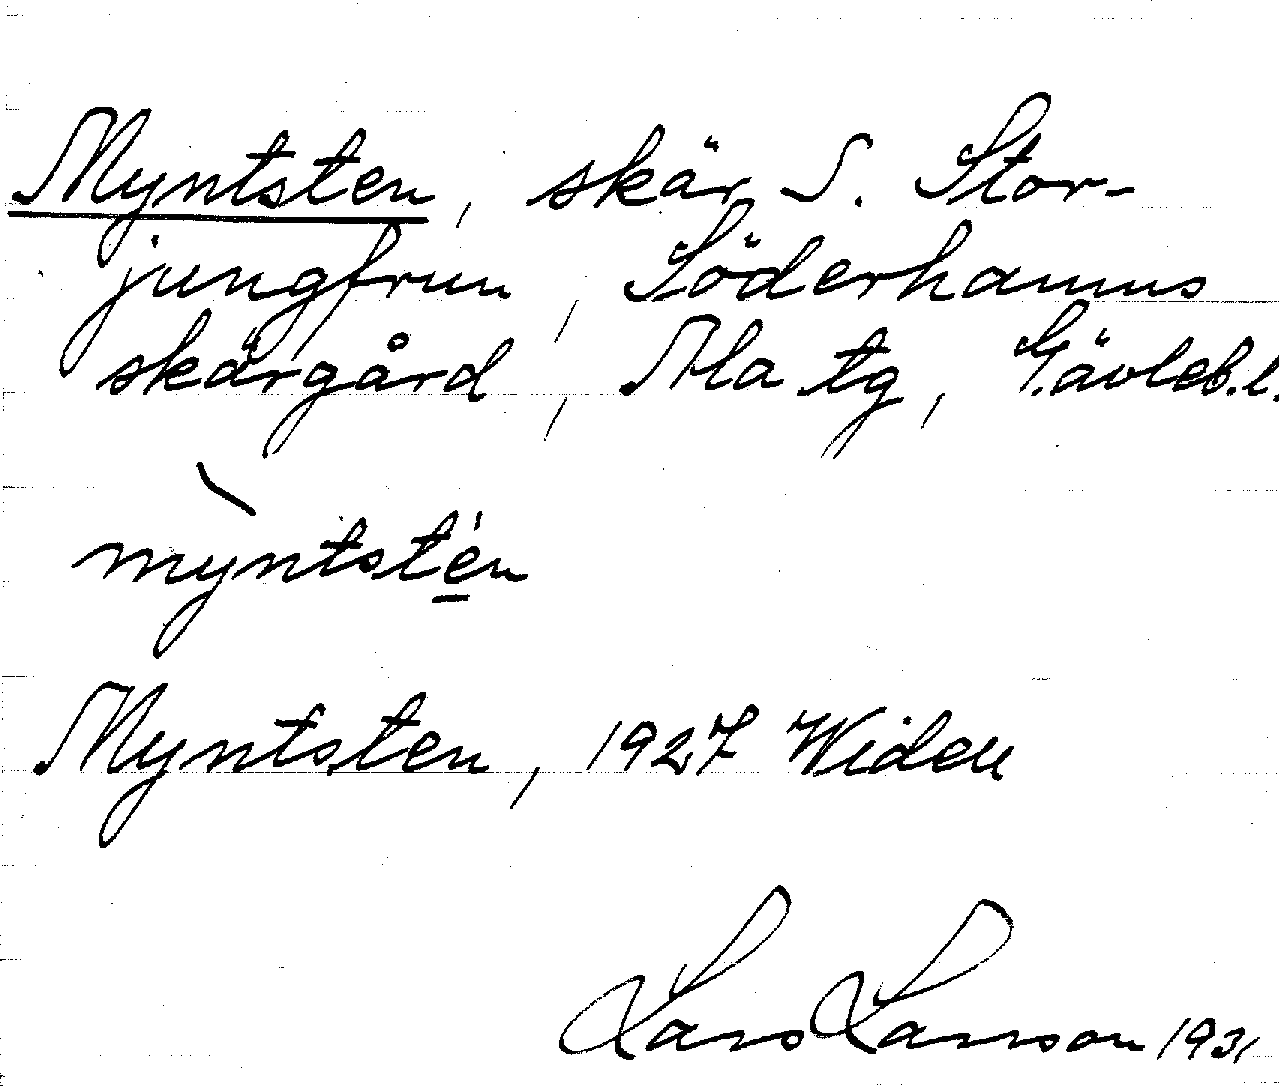 Myntsten, skär S. Stor-
jungfrun, Söderhamns
skärgård, Ala tg, Gävleb. l.
mỳntstén
Myntsten, 1927 Widén
Lars Larsson 1931